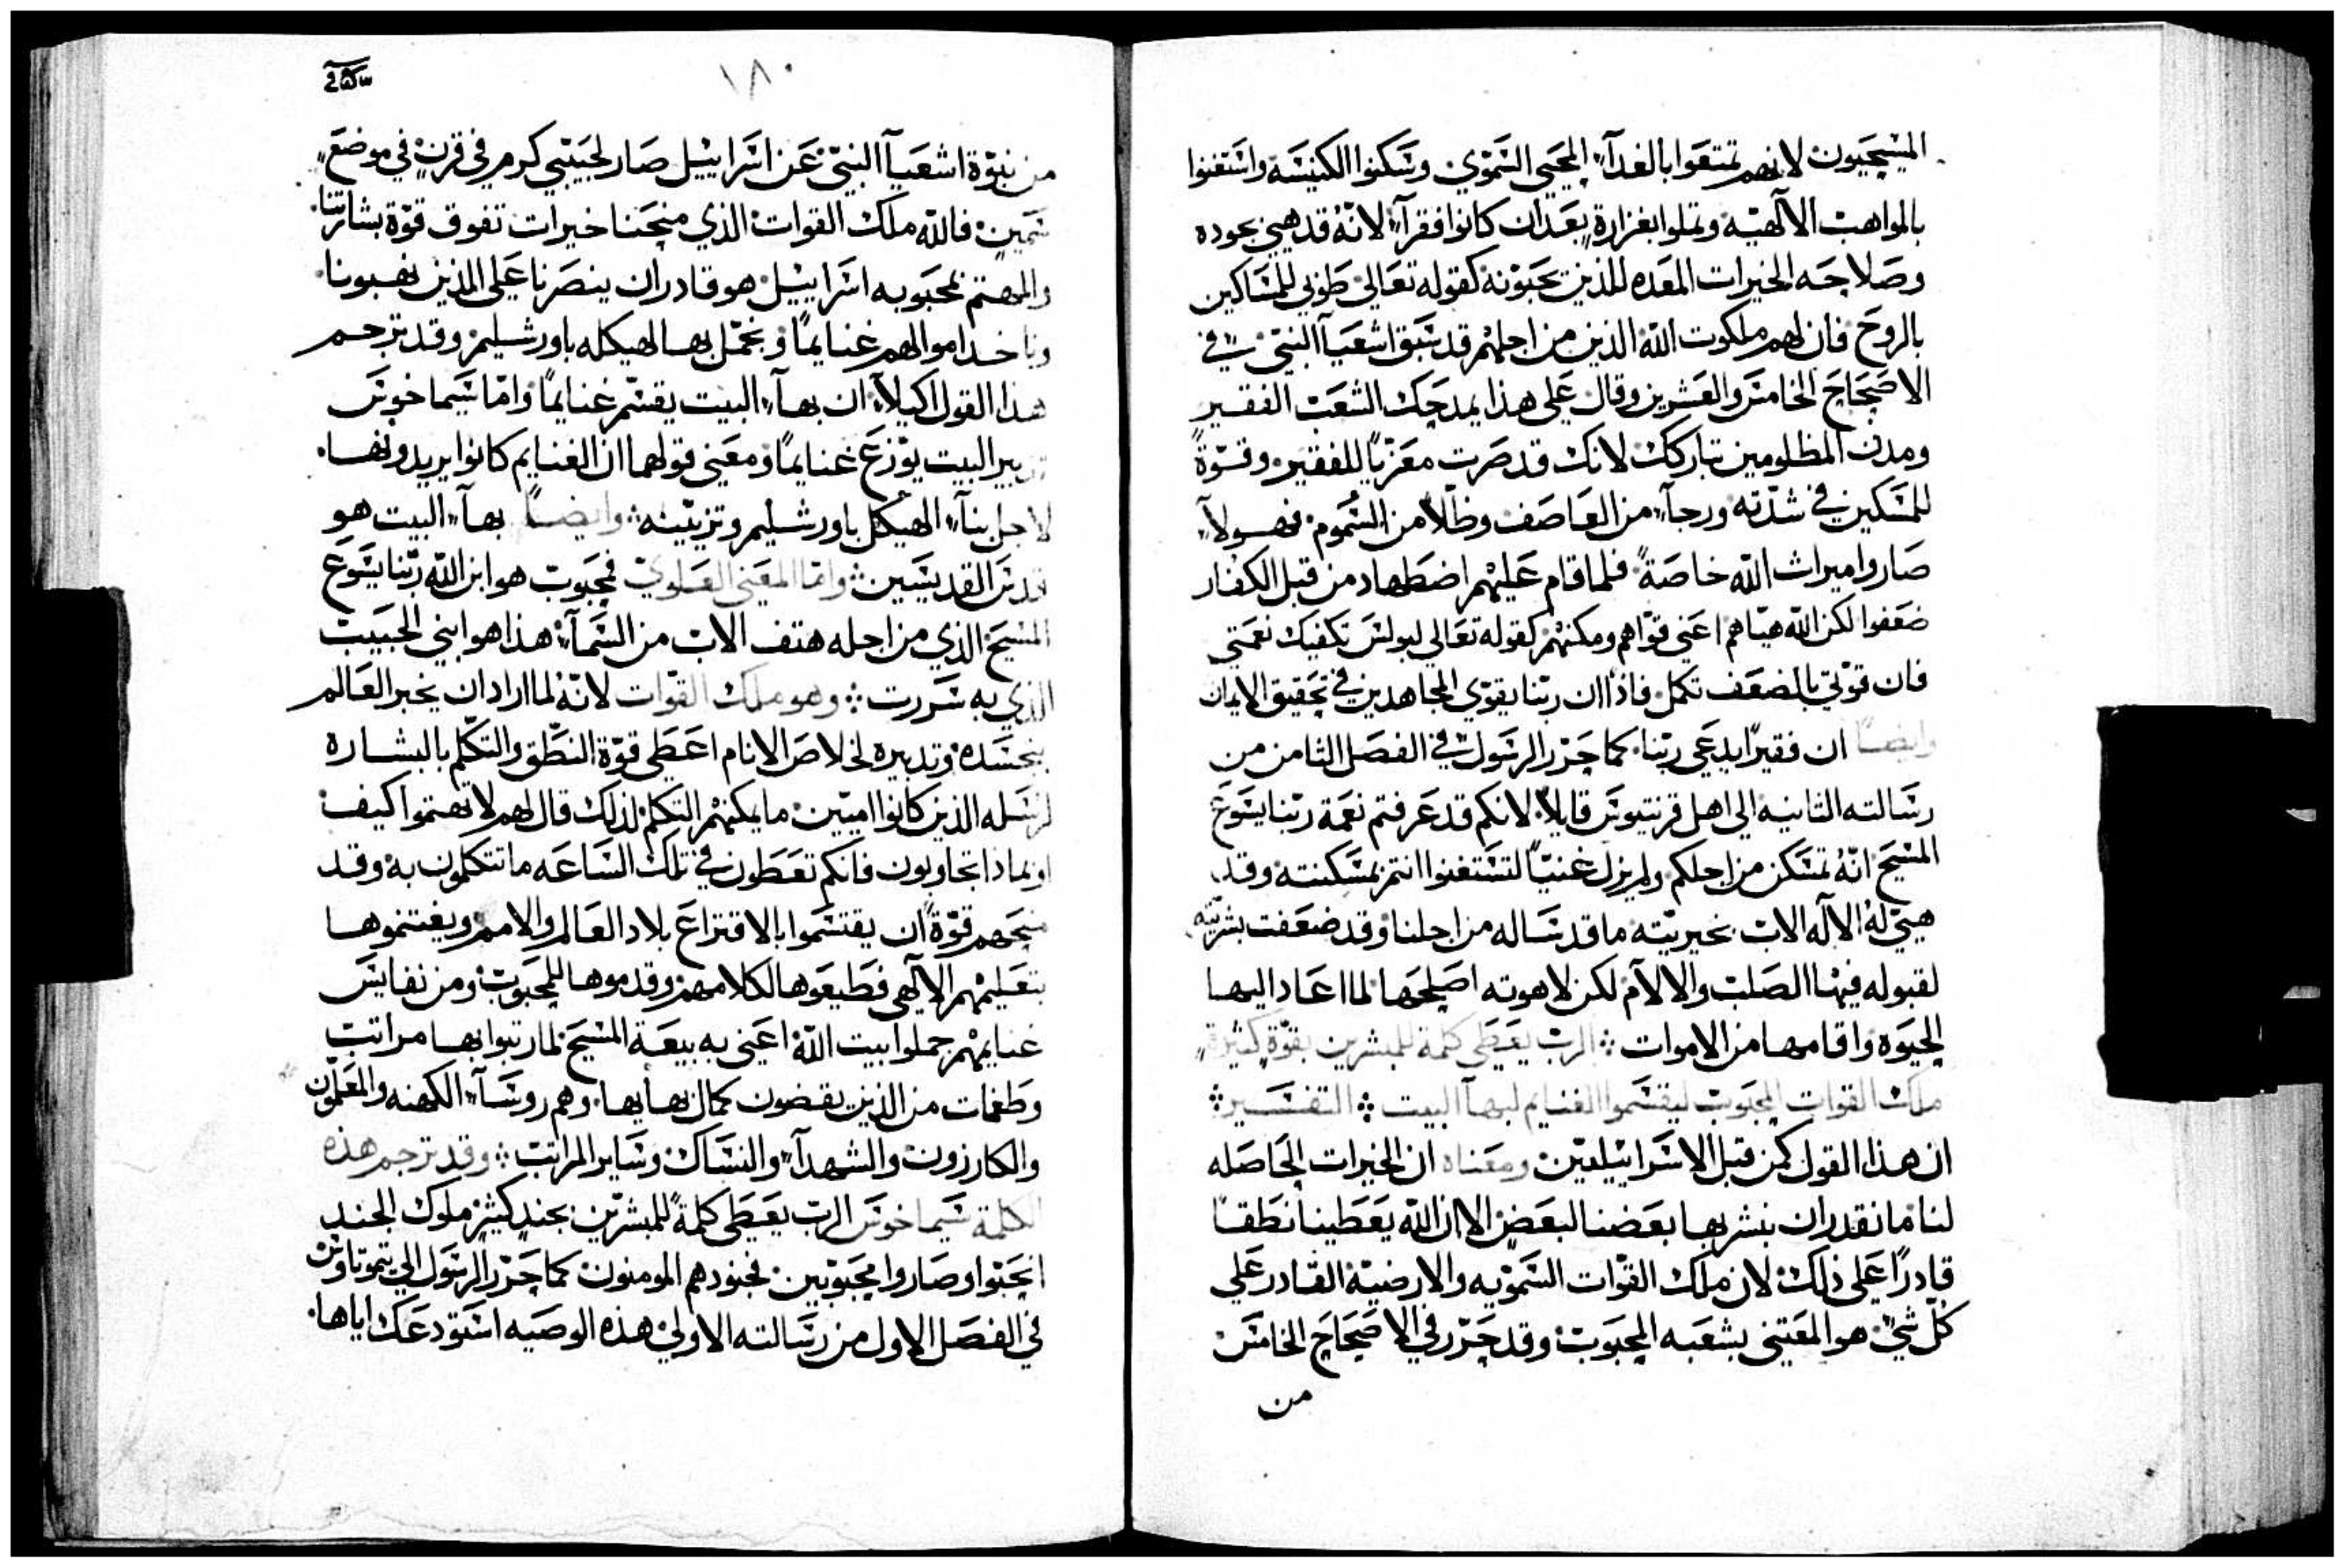 المسيحيون لانهم تمتعوا بالغدآء المحيي السموي وسكنوا الكنيسه واستغنوا
بالمواهب الالهيه وتملوا بغزارةٍ بعد ان كانوا فقرآء لانه قد هيئ بجوده
وصلاحه الخيرات المعده للذين يحبونه كقوله تعالي طوبي للمساكين
بالروح فان لهم ملكوت الله الذين من اجلهم قد سبق اشعيآ النبي في
الاصحاح الخامس والعشرين وقال علي هذا يمدحك الشعب الفقير
ومدن المظلومين تباركك لانك قد صرت معزيًا للفقير وقوةً
للمسكين في شدته ورجآء من العاصف وظلًا من السموم فهولآء
صاروا ميراث الله خاصةً فلما قام عليهم اضطهاد من قبل الكفار
ضعفوا لكن الله هياهم اعني قواهم ومكنهم كقوله تعالي لبولس تكفيك نعمتي
فان قوتي بالضعف تكمل فاذًا ان ربنا يقوي المجاهدين في تحقيق الايمان
وايضًا ان فقيرًا يدعي ربنا كما حرر الرسول في الفصل الثامن من
رسالته الثانيه الي اهل قرنتيوس قايلًا لانكم قد عرفتم نعمة ربنا يسوع
المسيح انه تمسكن من اجلكم ولم يزل غنيًا لتستغنوا انتم بمسكنته وقد
هيئ له الاله الاب بخيريته ما قد ساله من اجلنا وقد ضعفت بشريته
لقبوله فيها الصلب والالام لكن لاهوته اصلحها لما اعاد اليها
الحيوة واقامها من الاموات الرب يعطي كلمة للمبشرين بقوةٍ كثيرةٍ
ملك القوات المحبوب ليقتسموا الغنايم لبهآ البيت التفسير
ان هذا القول كمن قبل الاسراييليين ومعناه ان الخيرات الحاصله
لنا ما نقدر ان نبشر بها بعضنا لبعض الا ان الله يعطينا نطقًا
قادرًا علي ذلك لان ملك القوات السمويه والارضية القادر علي
كل شيء هو المعتني بشعبه المحبوب وقد حرر في الاصحاح الخامس
من
١٨٠
من نبوة اشعيآ النبي عن اسراييل صار لحبيبي كرم في قرنٍ في موضعٍ
سمينٍ فالله ملك القوات الذي منحنا خيرات تفوق قوة بشارتنا
والمهتم بمحبوبه اسراييل هو قادر ان ينصرنا علي الذين نهبونا
وناخذ اموالهم غنايمًا ونجمل بها الهيكل باورشليم وقد ترجم
هذا القول اكيلآ ان بهآء البيت يقسم غنايمًا واما سيماخوس
البيت يوزع غنايمًا ومعني قولهما ان الغنايم كانوا يريدونها
لاجل بنآء الهيكل باورشليم وتزيينه وايضًا بهآء البيت هو
قدس القديسين واما المعني العلوي فمحبوب هو ابن الله ربنا يسوع
المسيح الذي من اجله هتف الاب من السمآء هذا هو ابني الحبيب
الذي به سررت وهو ملك القوات لانه لما اراد ان يخبر العالم
بتجسده وتدبيره لخلاص الانام اعطي قوة النطق والتكلم بالبشاره
لرسله الذين كانوا اميين ما يمكنهم التكلم لذلك قال لهم لا تهتموا كيف
او بماذا تجاوبون فانكم تعطون في تلك الساعه ما تتكلمون به وقد
منحهم قوةً ان يقتسموا بالاقتراع بلاد العالم والامم ويغتنموها
بتعليمهم الالهي فطيعوها لكلامهم وقدموها للمحبوب ومن نفايس
غنايمهم جملوا بيت الله اعني به بيعة المسيح لما رتبوا بها مراتب
وطغمات من الذين يقضون كمال بهايها وهم روسآء الكهنه والمعلمون
والكارزون والشهدآء والنساك وساير المراتب وقد ترجم هذه
الكلمة سيماخوس الرب يعطي كلمةً للمبشرين بجندٍ كثيرٍ ملوك الجند
احبوا وصاروا محبوبين فجنودهم المومنون كما حرر الرسول الي تيموتاوس
في الفصل الاول من رسالته الاولي هذه الوصيه استودعك اياها